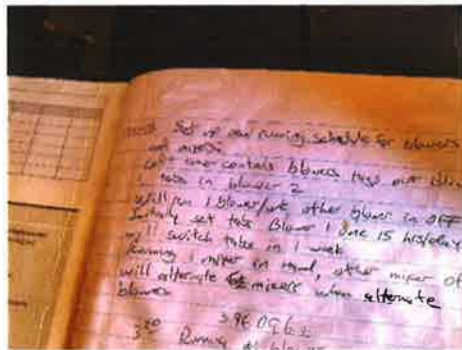 Set up new running schedule for blowers
and mixers.
timer controls blowers tags out
tabs in blower 2
Will run 1 blower/wk, other blower in OFF
Initially set tabs Blower 1 15 hrs/day
will switch tabs in 1 week
Running 1 mixer in Hand, other mixer off
will alternate mixers when alternate
blowers
3.96
Running blower